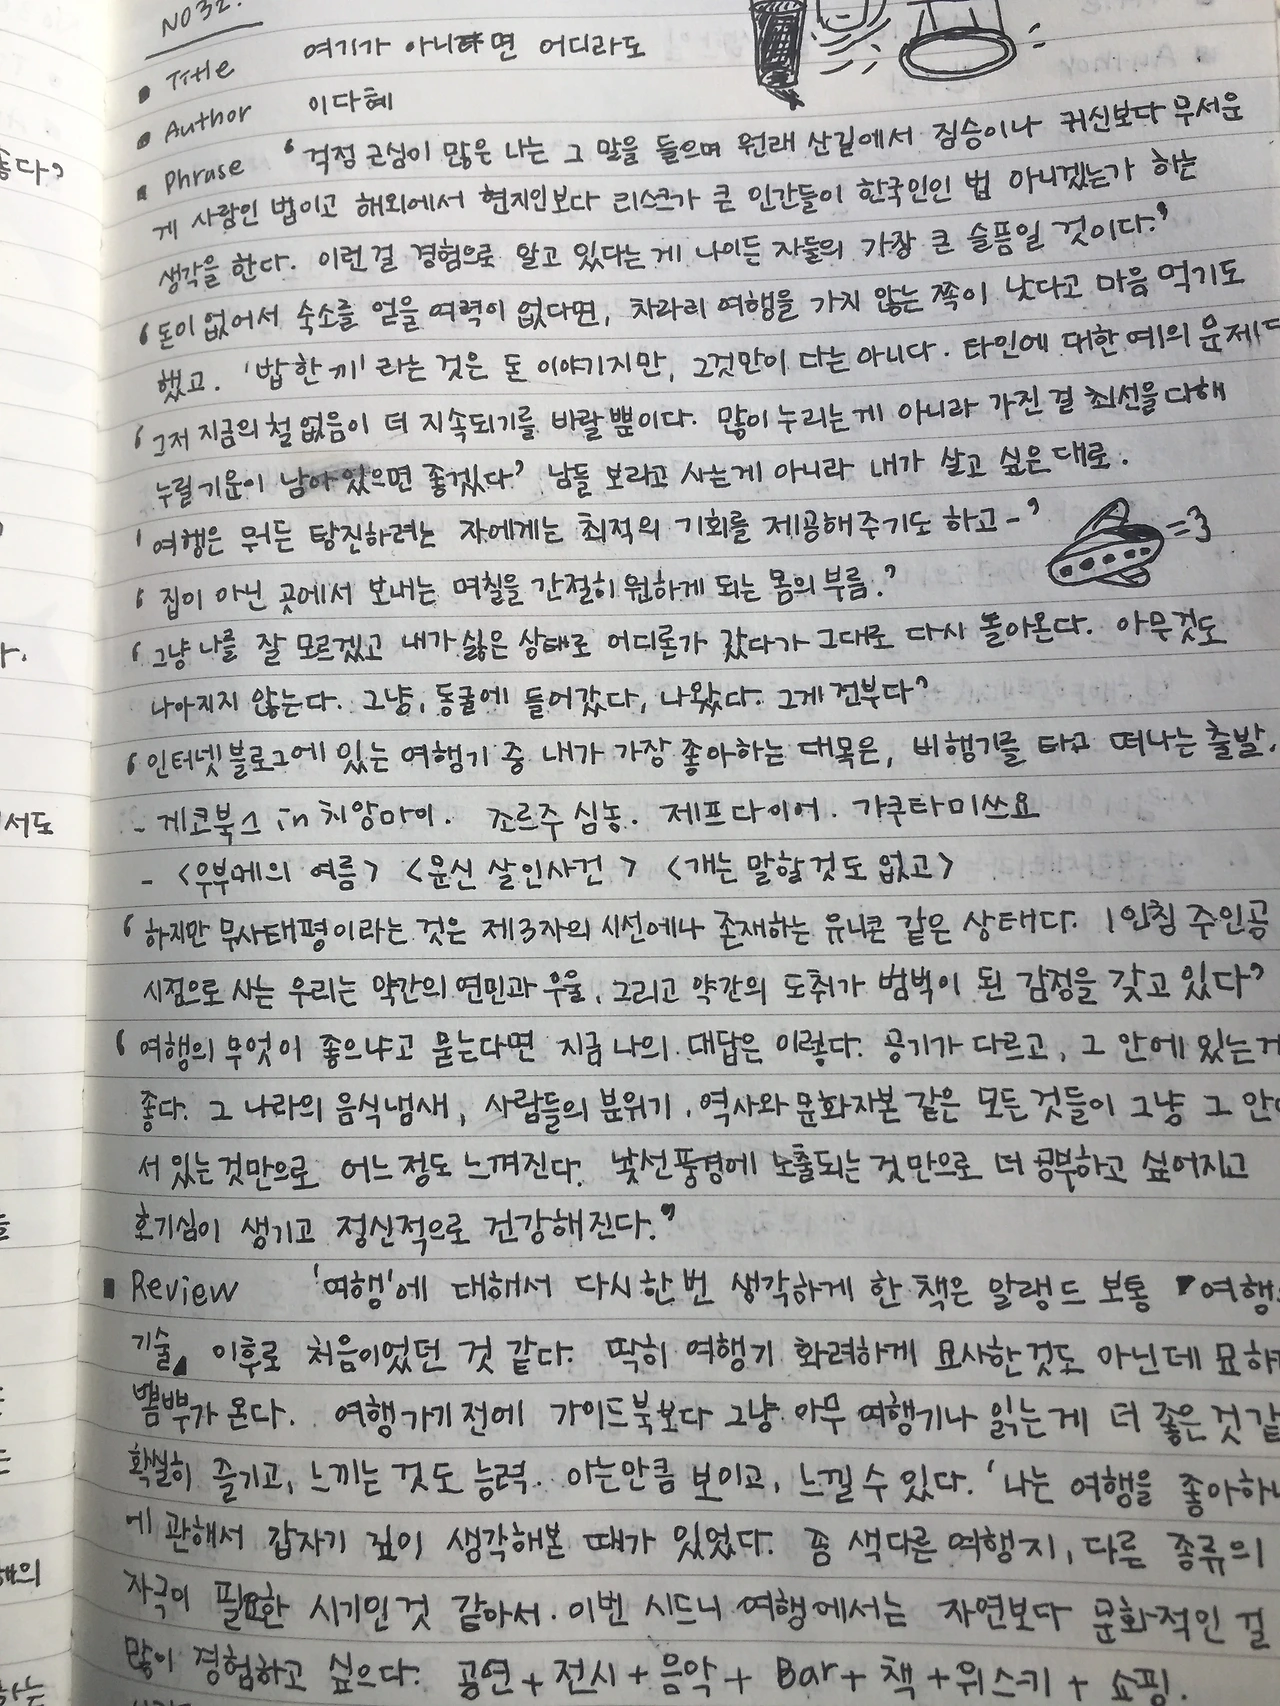 NO32.
▪ Title 여기가 아니라면 어디라도
▪ Author 이다혜
▪ Phrase ‘걱정 근심이 많은 나는 그 말을 들으며 원래 산길에서 짐승이나 귀신보다 무서운
게 사람인 법이고 해외에서 현지인보다 리스크가 큰 인간들이 한국인인 법 아니겠는가 하는
생각을 한다. 이런걸 경험으로 알고 있다는 게 나이든 자들의 가장 큰 슬픔일 것이다.’
‘돈이 없어서 숙소를 얻을 여력이 없다면, 차라리 여행을 가지 않는 쪽이 낫다고 마음 먹기도
했고. ‘밥 한 끼’ 라는 것은 돈 이야기지만, 그것만이 다는 아니다. 타인에 대한 예의 문제다
‘그저 지금의 철 없음이 더 지속되기를 바랄 뿐이다. 많이 누리는 게 아니라 가진 걸 최선을 다해
누릴 기운이 남아있으면 좋겠다’ 남들 보라고 사는게 아니라 내가 살고 싶은 대로.
‘여행은 뭐든 탕진하려는 자에게는 최적의 기회를 제공해주기도 하고-’
‘집이 아닌 곳에서 보내는 며칠을 간절히 원하게 되는 몸의 부름.’
‘그냥 나를 잘 모르겠고 내가 싫은 상태로 어디론가 갔다가 그대로 다시 돌아온다. 아무것도
나아지지 않는다. 그냥, 동굴에 들어갔다, 나왔다. 그게 전부다’
‘인터넷 블로그에 있는 여행기 중 내가 가장 좋아하는 대목은, 비행기를 타고 떠나는 출발.
- 게코북스 in 치앙마이. 조르주 심농. 제프다이어. 가쿠타미쓰요
- <우부메의 여름> <문신 살인사건> <개는 말할것도 없고>
‘하지만 무사태평이라는 것은 제3자의 시선에나 존재하는 유니콘 같은 상태다. 1인칭 주인공
시점으로 사는 우리는 약간의 연민과 우울, 그리고 약간의 도취가 범벅이 된 감정을 갖고 있다’
‘여행의 무엇이 좋으냐고 묻는다면 지금 나의 대답은 이렇다. 공기가 다르고, 그 안에 있는게
좋다. 그 나라의 음식냄새, 사람들의 분위기, 역사와 문화자본 같은 모든 것들이 그냥 그 안에
서 있는 것만으로 어느정도 느껴진다. 낯선 풍경에 노출되는 것 만으로 더 공부하고 싶어지고
호기심이 생기고 정신적으로 건강해진다.’
▪ Review ‘여행’에 대해서 다시한번 생각하게 한 책은 알랭드 보통 『여행의
기술』 이후로 처음이었던 것 같다. 딱히 여행기 화려하게 묘사한것도 아닌데 묘하게
뽐뿌가 온다. 여행 가기 전에 가이드북보다 그냥 아무 여행기나 읽는 게 더 좋은 것 같
확실히 즐기고, 느끼는 것도 능력. 아는만큼 보이고, 느낄 수 있다. ‘나는 여행을 좋아하나
에 관해서 갑자기 깊이 생각해본 때가 있었다. 좀 색다른 여행지, 다른 종류의
자극이 필요한 시기인 것 같아서. 이번 시드니 여행에서는 자연보다 문화적인 걸
많이 경험하고 싶다. 공연 + 전시 + 음악 + Bar + 책 + 위스키 + 쇼핑.